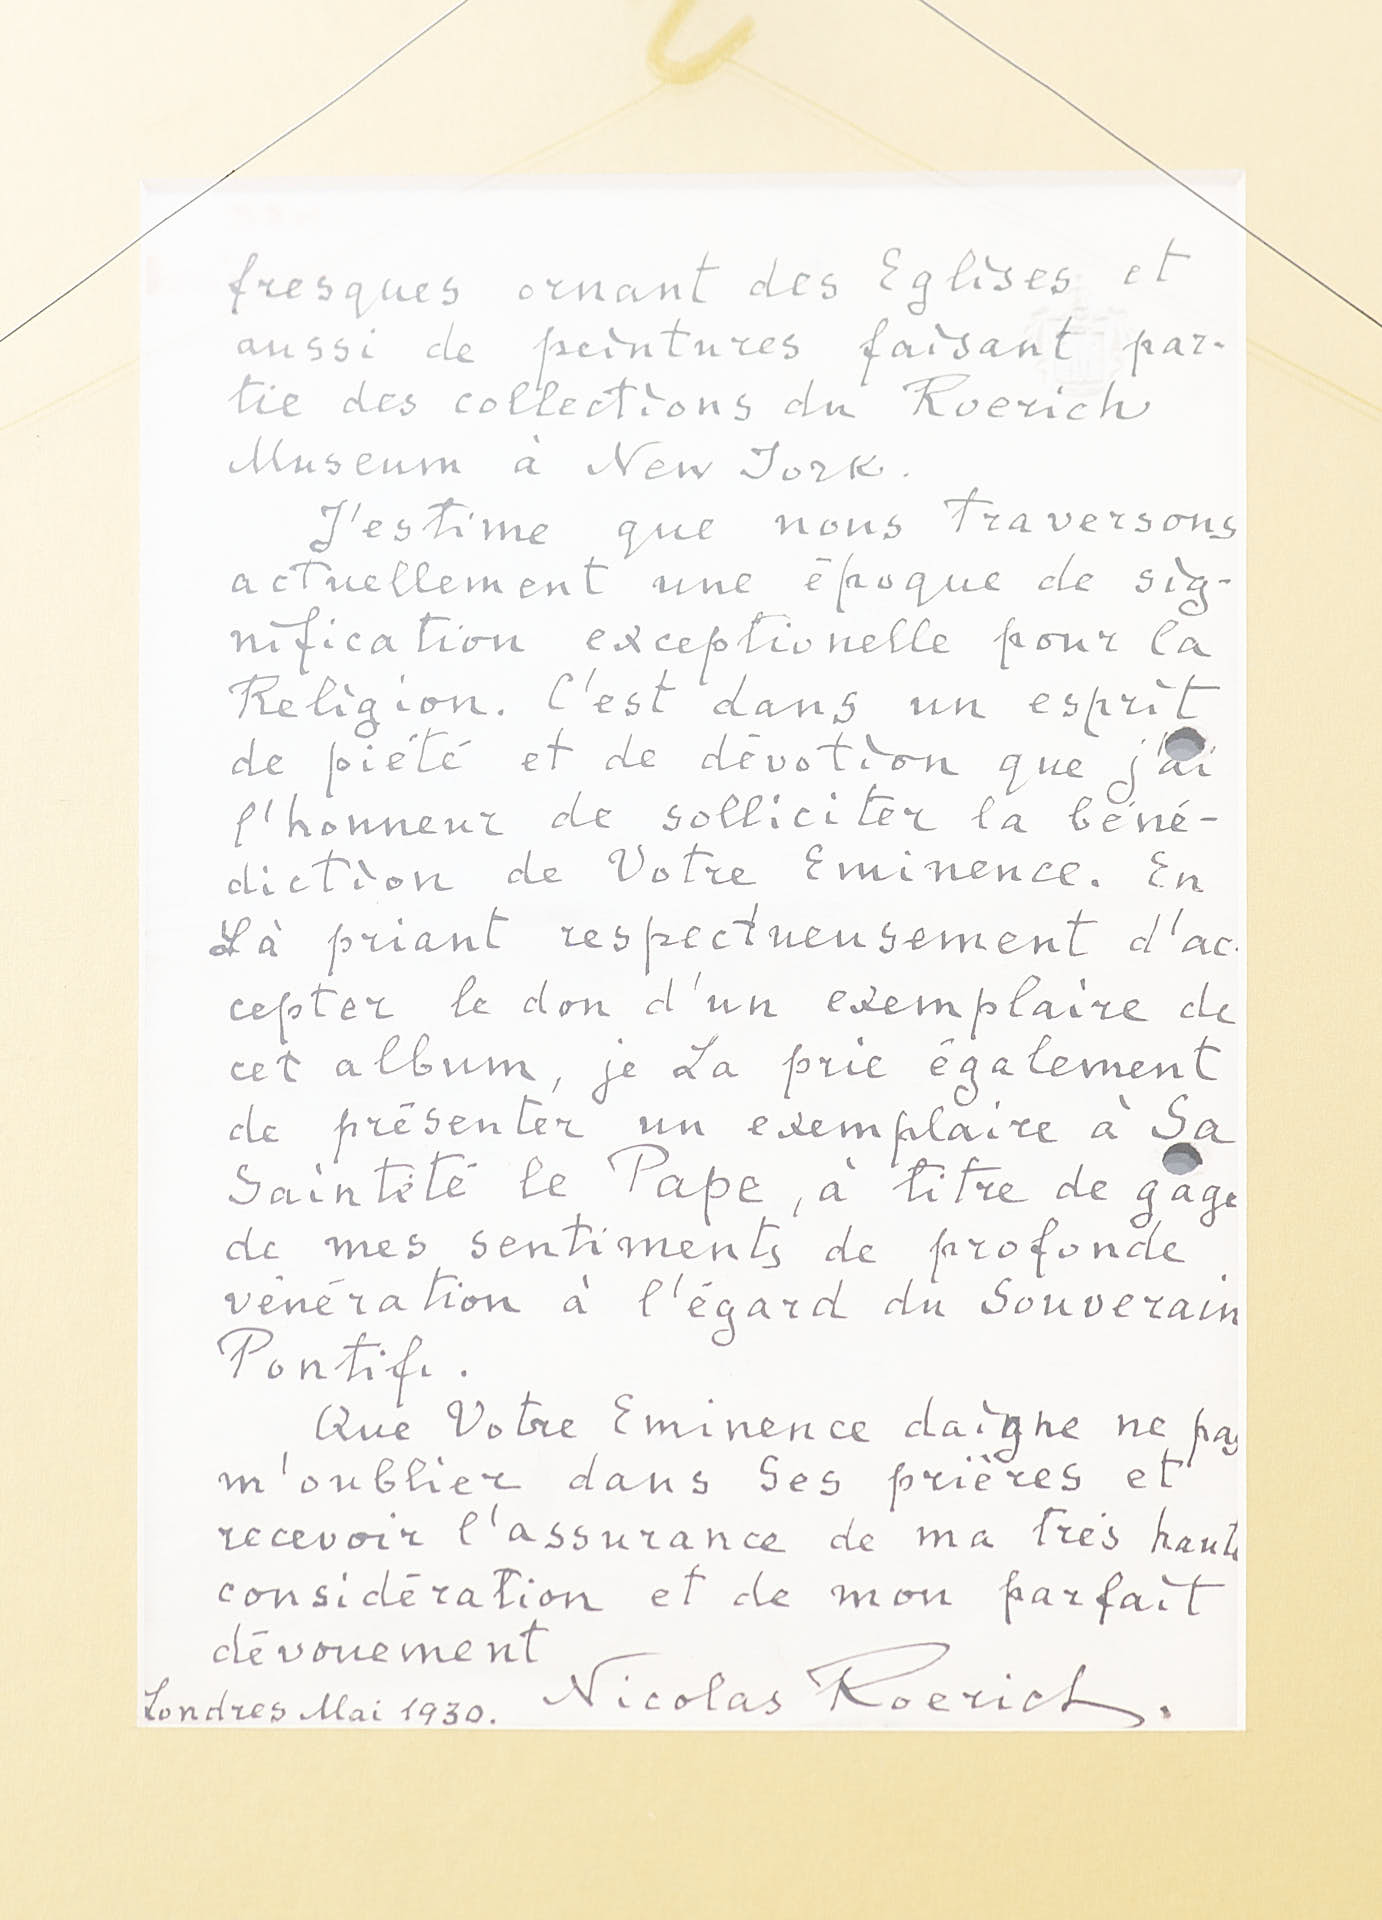 fresques ornant des Eglises et
aussi de peintures faisant par-
tie des collections du Roerich
Museum à New York.
J'estime que nous traversons
actuellement une époque de sig-
nification exceptionelle pour la
Religion. C'est dans un esprit
de piété et de dévotion que j'ai
l'honneur de solliciter la béné-
diction de Votre Eminence. En
La priant respectueusement d'ac-
cepter le don d'un exemplaire de
cet album, je La prie également
de présenter un exemplaire à Sa
Sainteté le Pape, à titre de gage
de mes sentiments de profonde
vénération à l'égard du Souverain
Pontife.
Que Votre Eminence daigne ne pas
m'oublier dans Ses prières et
recevoir l'assurance de ma très haute
considération et de mon parfait
dévouement
Londres Mai 1930. Nicolas Roerich.